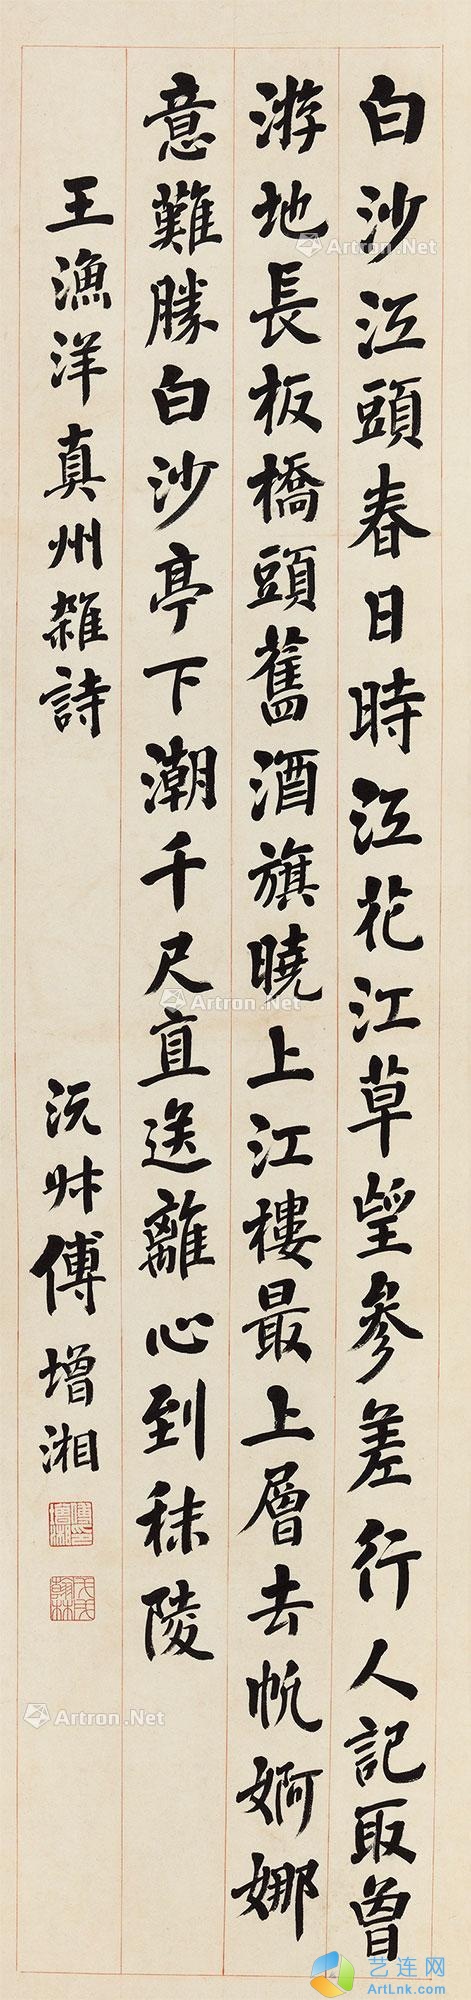 白沙江頭春日時江花江草望參差行人記取曾
游地長板橋頭舊酒旗曉上江樓最上層去帆婀娜
意難勝白沙亭下潮千尺直送離心到秣陵
王漁洋真州雜詩
沅叔傅增湘
傅增湘印
戊戌翰林
Artron.Net
Artron.Net
Artron.Net
Artron.Net
艺连网
ArtLnk.com